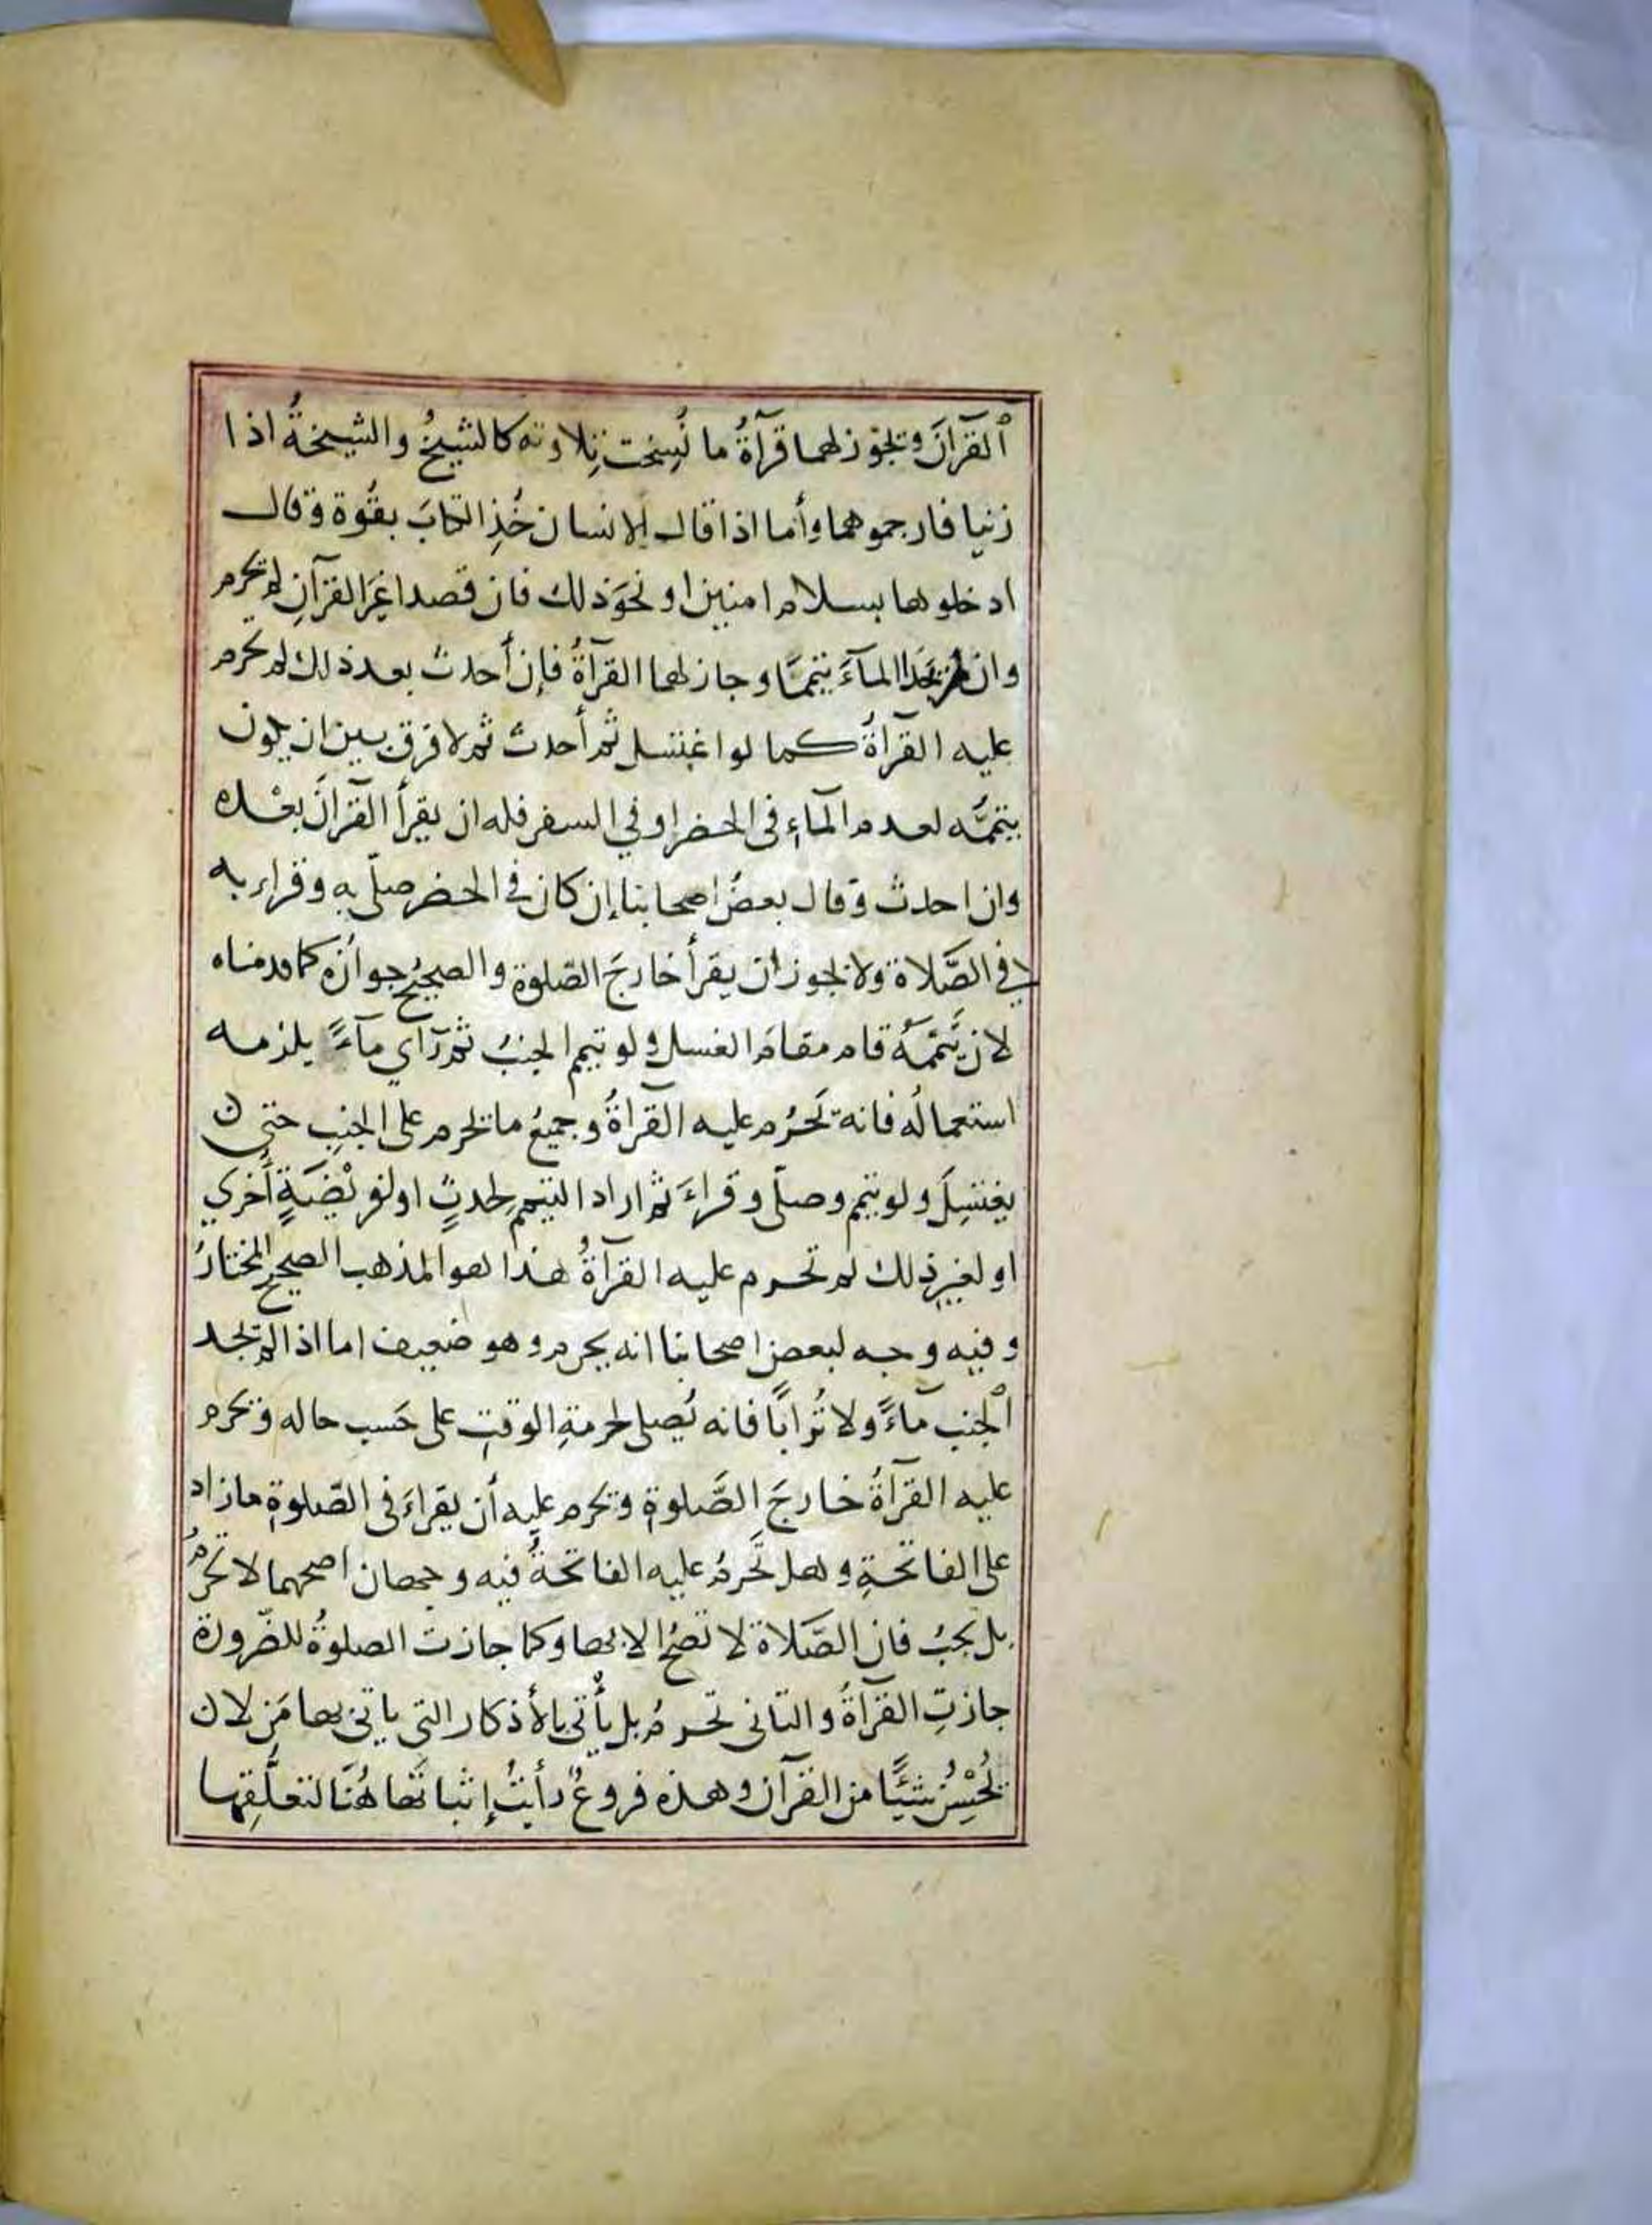 ألقرآنَ ويجوز لهما قرآةُ ما نُسِخت تِلاوته كالشيخُ والشيخةُ اذا
زنيا فارجموهما وأما اذا قال الانسان خُذِ الكتابَ بقُوة وقال
ادخلوها بسلام امنين او نحوَ ذلك فان قصدا غيَر القرآنِ لم يحرم
وان لم يَجَدا المآءَ يتيممَّا وجاز لهما القرآةُ فإن أحدث بعد ذلك لم يحرم
عليه القرآةُ كما لو اغتسل ثم أحدث ثم لا فرق بين ان يكون
يتيممُّه لعدم المآءِ فى الحضر او في السفر فله ان يقرأ القرآنَ بعْده
وان احدث وقال بعضُ اصحابنا إن كان في الحضر صلّي به وقراء به
في الصَّلاة ولا يجوز ان يقرأ خارجَ الصّلوة والصحيحُ جوازُه كما قدمناه
لان تَيَمُّمَهُ قام مقامَ الغسل ولو تيمم الجنبُ ثم رَآي مآءً يلزمه
استعمالُه فانه تَحْرُم عليه القرآةُ وجميعُ ما يحرم على الجنبِ حتى
يغتسِلَ ولو تيمم وصلّى وقراءَ ثم اراد التيمم لِحدثٍ او لفريْضَةٍ أُخري
او لغيرِ ذلك لم تحرم عليه القرآةُ هذا هو المذهب الصحيح المختارُ
وفيه وجه لبعض اصحابنا انه يحرم وهو ضعيف اما اذا لم يجد
ألجنب مآءً ولا تُرابًا فانه يُصلى لحرمةِ الوقتِ على حَسبِ حاله ويحرم
عليه القرآةُ خارجَ الصَّلوةِ ويحرم عليه أن يقراءَ فى الصّلوةِ ما زاد
على الفاتحةِ وهل تَحرمُ عليه الفاتحةُ فيه وجهان اصحهما لا تحرمُ
بل يجبُ فان الصَّلاة لا تصحُ الا بها وكما جازت الصلوةُ للضّرورة
جازتِ القرآةُ والثانى تحرمُ بل يأتى بالأذكار التى ياتى بها مَن لا
يُحْسِنُ شيئًا من القرآن وهذه فروعٌ رأيتُ إثباتَها هُنَا لتعلُّقِها